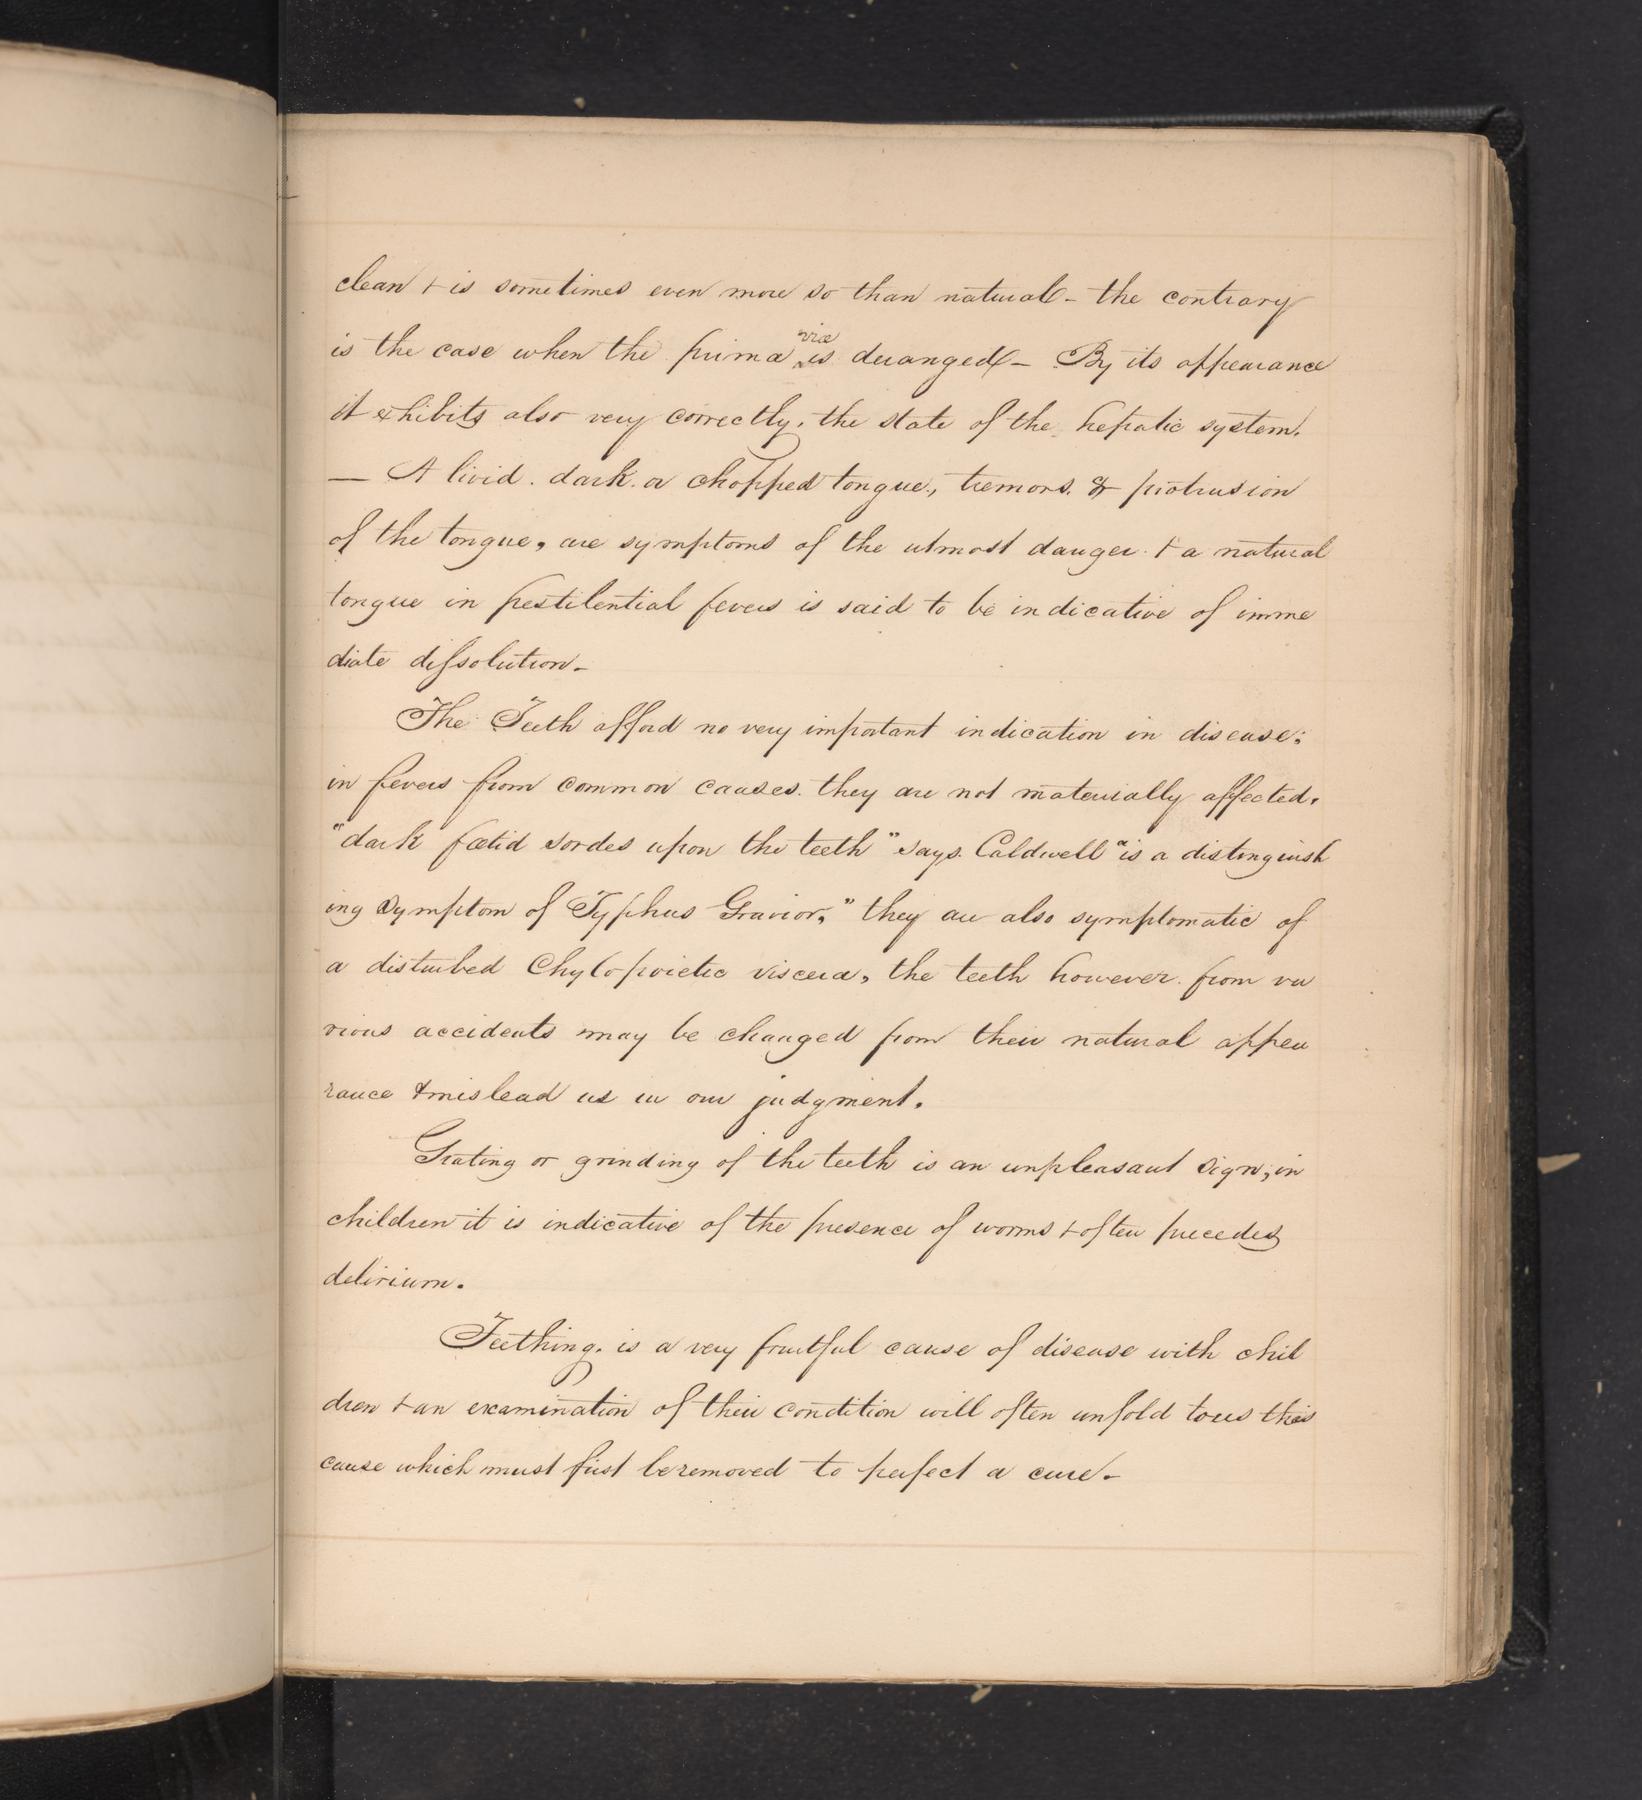 clean + is sometimes even more so than natural - the contrary
is the case when the prima viæ is deranged - By its appearance
it exhibits also very correctly, the state of the hepatic system.
— A livid. dark. or chopped tongue, tremors. & protrusion
of the tongue, are symptoms of the utmost danger. + a natural
tongue in pestilential fevers is said to be indicative of imme
diate dissolution -
The Teeth afford no very important indication in disease;
in fevers from common causes. they are not materially affected.
"dark fœtid sordes upon the teeth" says. Caldwell "is a distinguish
ing symptom of Typhus Gravior," they are also symptomatic of
a disturbed Chylopoietic viscera, the teeth however from va
rious accidents may be changed from their natural appea
rance & mislead us in our judgment.
Grating or grinding of the teeth is an unpleasant sign; in
children it is indicative of the presence of worms + often precedes
delirium.
Teething. is a very fruitful cause of disease with chil
dren + an examination of their condition will often unfold to us this
cause which must first be removed to perfect a cure -